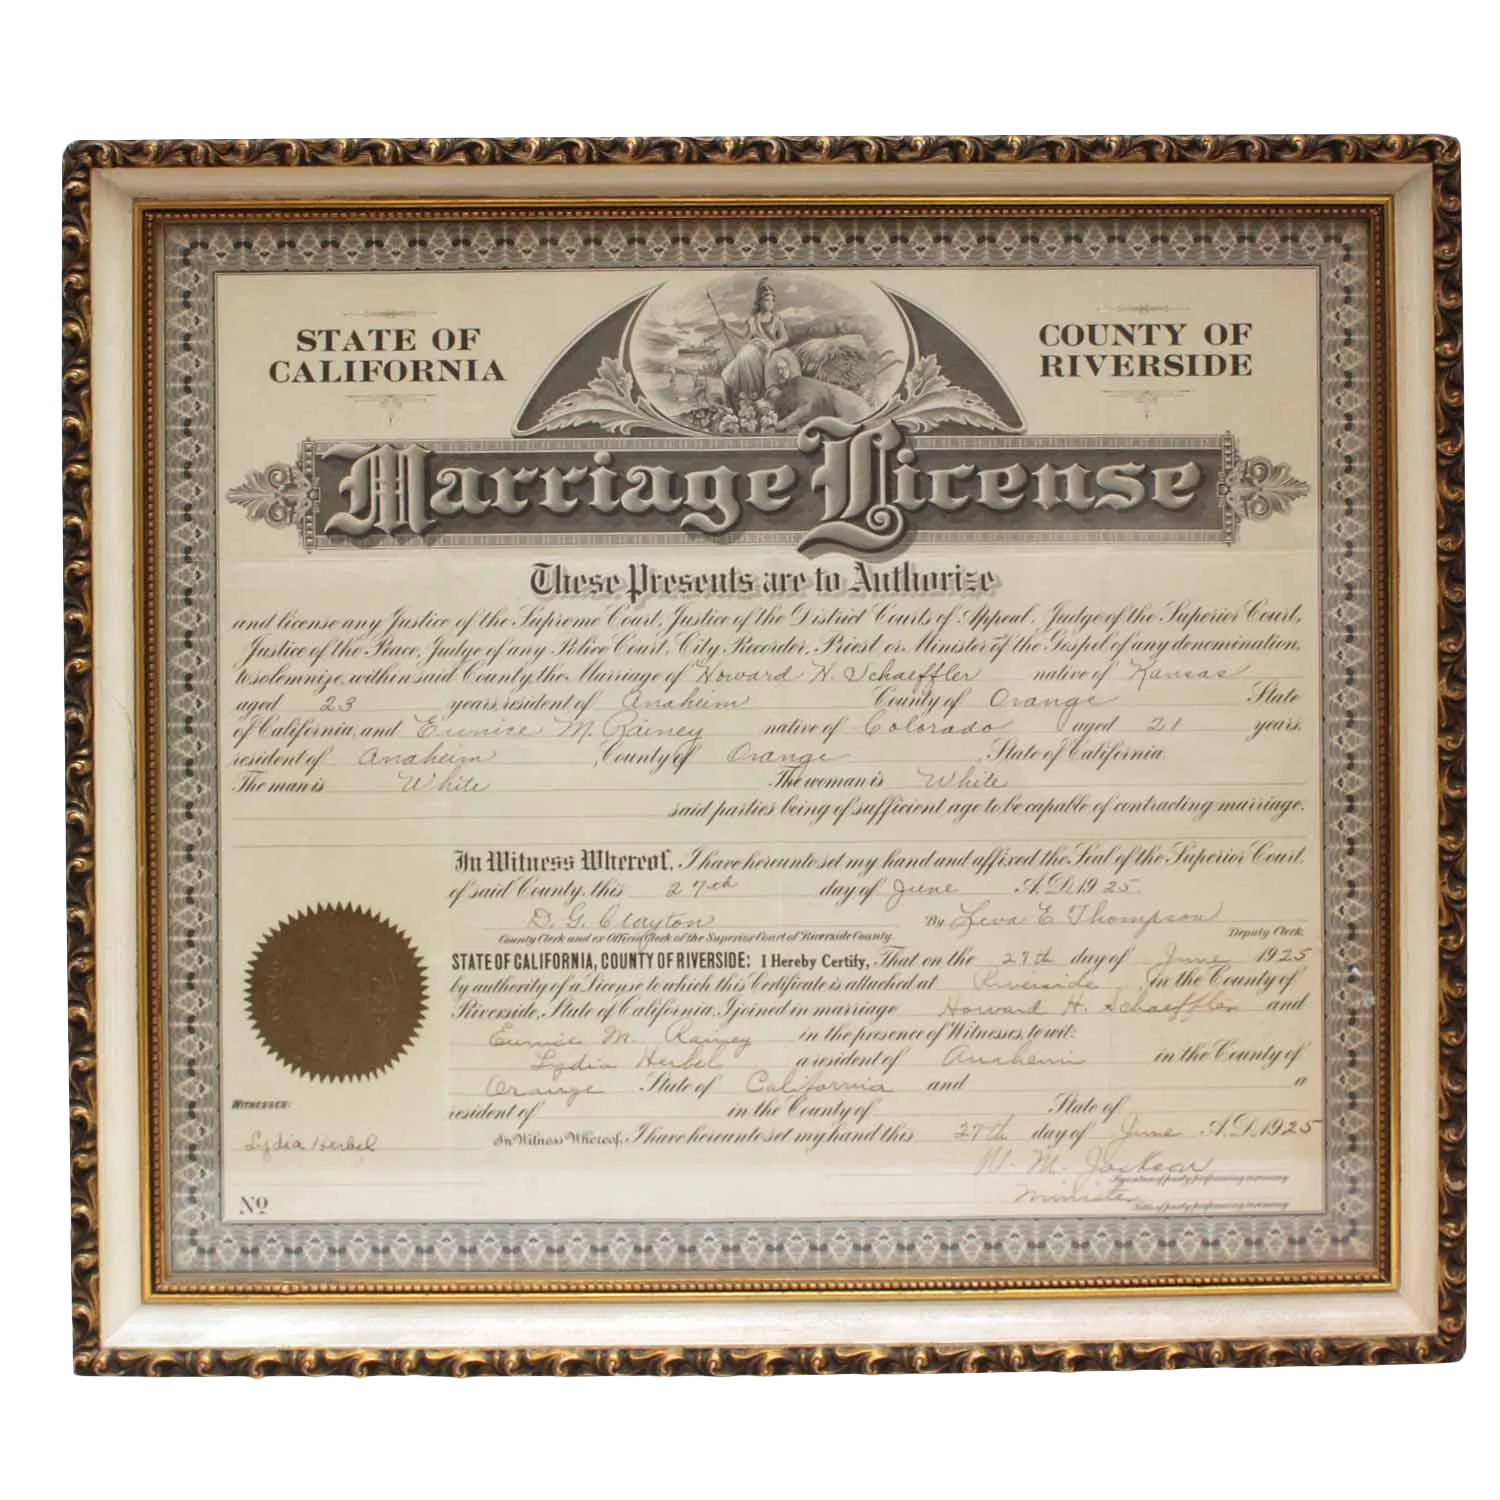 STATE OF
CALIFORNIA
COUNTY OF
RIVERSIDE
Marriage License
These Presents are to Authorize
and license any Justice of the Supreme Court, Justice of the District Courts of Appeal, Judge of the Superior Court,
Justice of the Peace, Judge of any Police Court, City Recorder, Priest or Minister of the Gospel of any denomination,
to solemnize, within said County, the Marriage of Howard H. Schaeffler native of Kansas
aged 23 years, resident of Anaheim County of Orange State
of California, and Eunice M. Rainey native of Colorado aged 21 years,
resident of Anaheim , County of Orange , State of California.
The man is White The woman is White
said parties being of sufficient age to be capable of contracting marriage.
In Witness Whereof, I have hereunto set my hand and affixed the Seal of the Superior Court
of said County, this 27th day of June A.D. 1925.
D. G. Clayton By Leva E Thompson
County Clerk and ex-Officio Clerk of the Superior Court of Riverside County. Deputy Clerk.
STATE OF CALIFORNIA, COUNTY OF RIVERSIDE: I Hereby Certify, That on the 27th day of June 1925
by authority of a License to which this Certificate is attached at Riverside , in the County of
Riverside, State of California, I joined in marriage Howard H. Schaeffler and
Eunice M. Rainey in the presence of Witnesses, to wit:
Lydia Herbel a resident of Anaheim in the County of
Orange State of California and a
resident of in the County of State of
WITNESSES:
Lydia Herbel
In Witness Whereof, I have hereunto set my hand this 27th day of June A.D. 1925
W. M. Jackson
Signature of party performing ceremony
Minister
Title of party performing ceremony
No